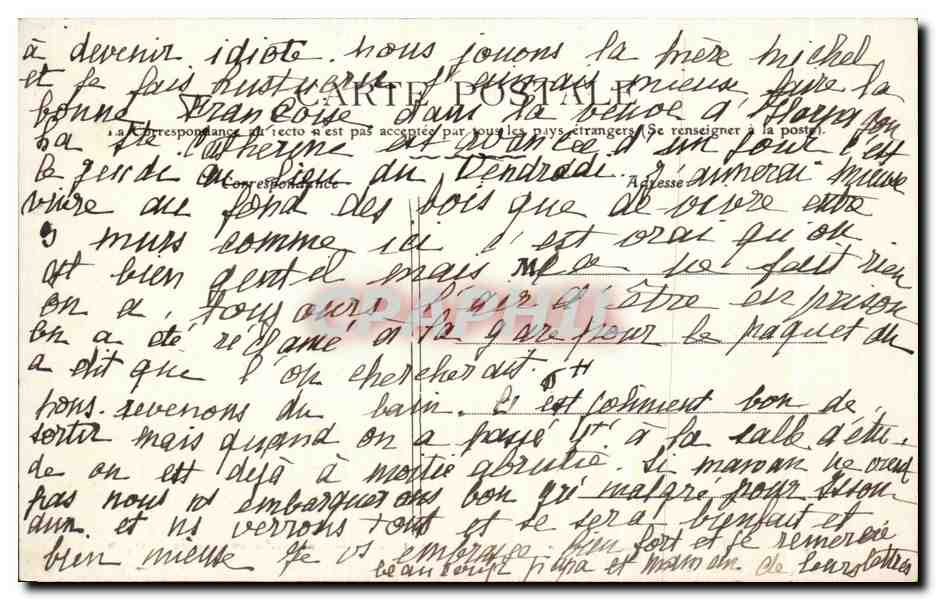 à devenir idiote. nous jouons la mère michel
et je fais j'aimerais mieux faire la
CARTE POSTALE
bonne Françoise dans la
La Correspondance au recto n'est pas acceptée par tous les pays étrangers (Se renseigner à la poste).
La Ste Catherine est avancée d'un jour c'est
le jeudi au lieu du Vendredi. j'aimerai mieux
Correspondance
Adresse
vivre au fond des bois que de vivre entre
murs comme ici c'est vrai qu'on
est bien gentil mais ne fait rien
M
on a toujours l'air d'être en prison
CPAPHIL
on a été réclamé à la gare pour le paquet on
a dit que l'on chercherait.
nous revenons du bain. bon de
sortir mais quand on a passé à la salle d'étu-
de on est déjà à moitié abrutie. Si maman ne vient
pas nous ns embarquerons bon gré malgré pour Issou-
dun et ns verrons tout et se sera bienfait et
bien mieuse Je vs embrasse bien fort et je remercie
beaucoup papa et maman de leurs lettres